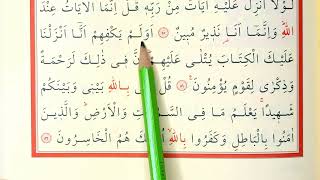 لَوْلَا اُنْزِلَ عَلَيْهِ اٰيَاتٌ مِنْ رَبِّهِ قُلْ اِنَّمَا الْاٰيَاتُ عِنْدَ
اللّٰهِ وَاِنَّمَا اَنَا نَذِيرٌ مُبِينٌ ﴿٥٠﴾ اَوَلَمْ يَكْفِهِمْ اَنَّا اَنْزَلْنَا
عَلَيْكَ الْكِتَابَ يُتْلٰى عَلَيْهِمْ اِنَّ فِي ذٰلِكَ لَرَحْمَةً
وَذِكْرٰى لِقَوْمٍ يُؤْمِنُونَ ﴿٥١﴾ قُلْ بِاللّٰهِ بَيْنِي وَبَيْنَكُمْ
شَهِيدًا يَعْلَمُ مَا فِي السَّمٰوَاتِ وَالْاَرْضِ وَالَّذِينَ
اٰمَنُوا بِالْبَاطِلِ وَكَفَرُوا بِاللّٰهِ اُولٰٓئِكَ هُمُ الْخَاسِرُونَ ﴿٥٢﴾